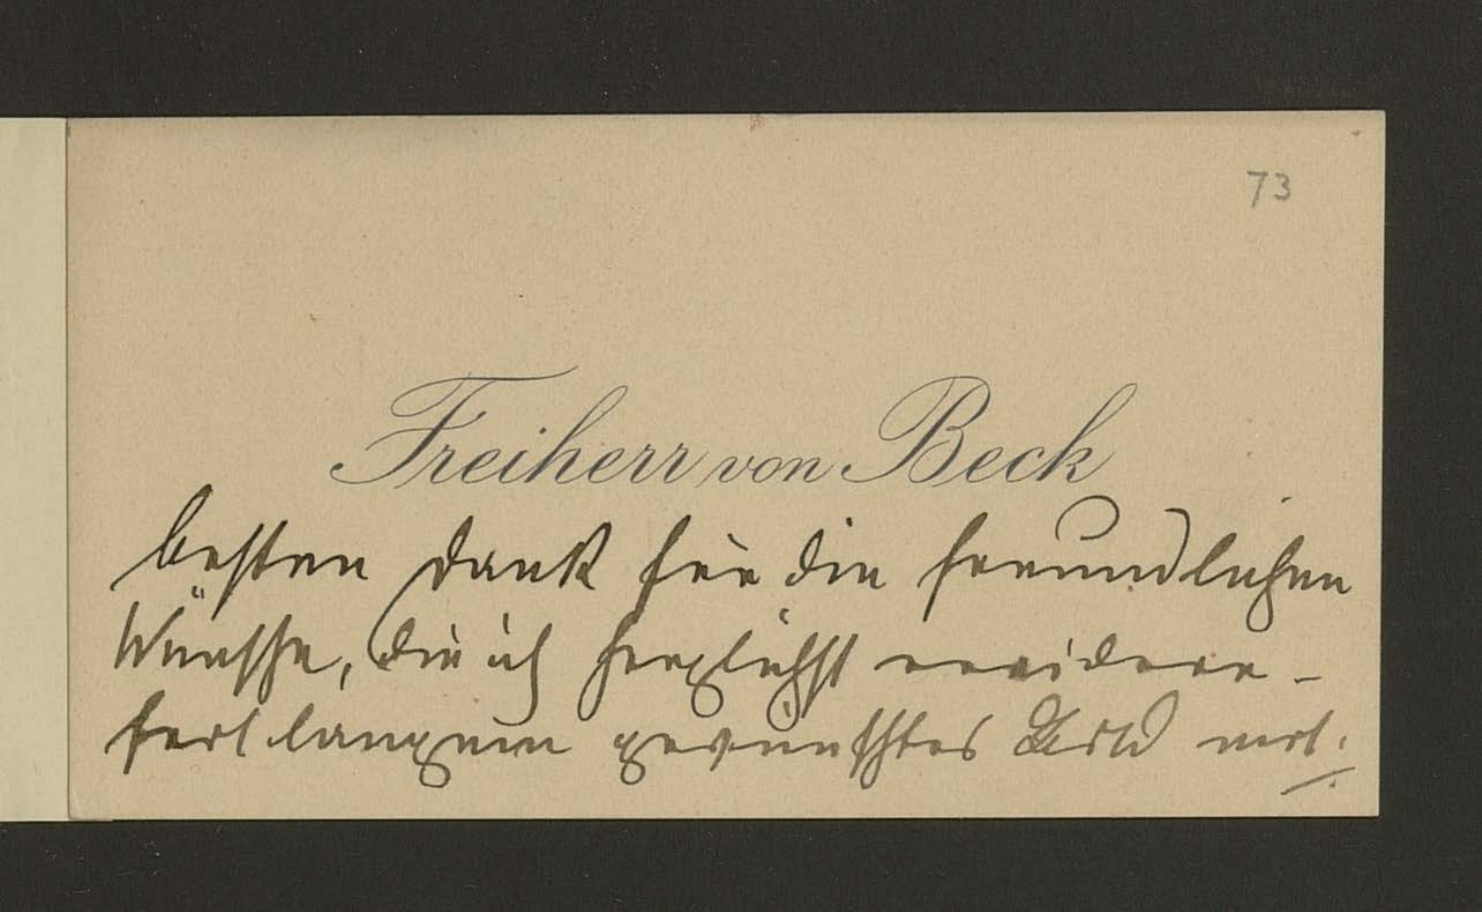 73
Freiherr von Beck
besten Dank für die freundlichen
Wünsche, die ich herzlichst erwidere –
gewünschtes Bild